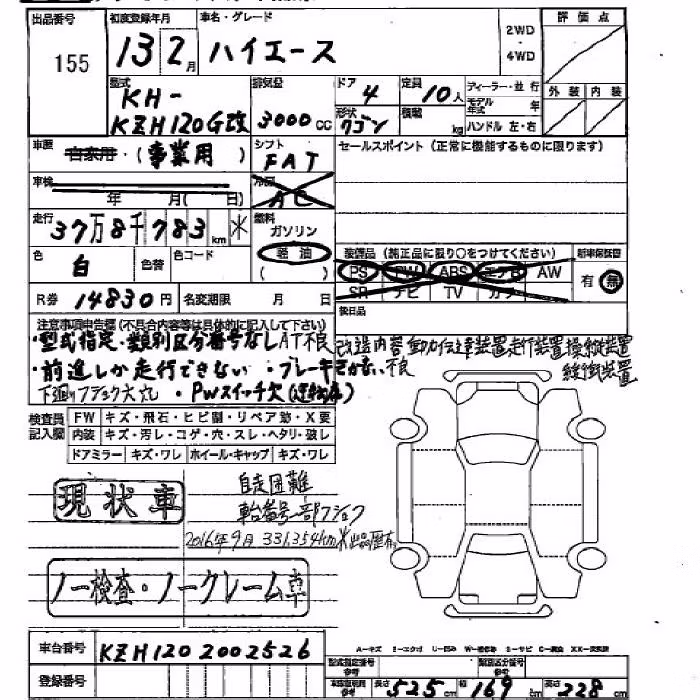 出品番号 155
初度登録年月 13 2月
車名・グレード ハイエース
2WD ・ 4WD
評価点
外装 内装
型式 KH- KZH120G改
排気量 3000cc
ドア 4
形状 ワゴン
定員 10人
積載 kg
ディーラー・並行
モデル年式 年
ハンドル 左・右
車歴 自家用・(事業用)
シフト FAT
セールスポイント (正常に機能するものに限ります)
車検 年 月( 日)
冷房 AC
走行 37万8千783km ※
燃料 ガソリン 軽油 ( )
色 白 色替 色コード
装備品 (純正品に限り○をつけてください)
PS PW ABS エアB AW
SR ナビ TV カワ
新車保証書 有・無
R券 14830円 名変期限 月 日
後日品
注意事項申告欄(不具合内容等は具体的に記入して下さい)
・型式指定・類別区分番号なし AT不良 改造内容 動力伝達装置 走行装置 操縦装置
緩衝装置
・前進しか走行できない・ブレーキきかない不良
下廻りフショク大穴・PWスイッチ欠(運転席)
検査員記入欄
FW キズ・飛石・ヒビ割・リペア跡・X要
内装 キズ・汚レ・コゲ・穴・スレ・ヘタリ・破レ
ドアミラー キズ・ワレ ホイール・キャップ キズ・ワレ
現状車
自走困難
車台番号一部フショク
2016年9月 331,354km※出品歴有
ノー検査・ノークレーム車
車台番号 KZH120 2002526
登録番号
型式指定番号 参考
類別区分番号 参考
長さ 525cm 幅 169cm 高さ 228cm